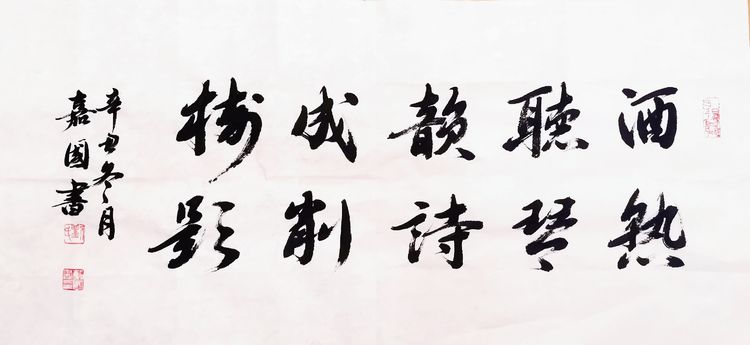 酒熟
聽琴
韻詩
成削
樹影
辛丑冬月
嘉國書